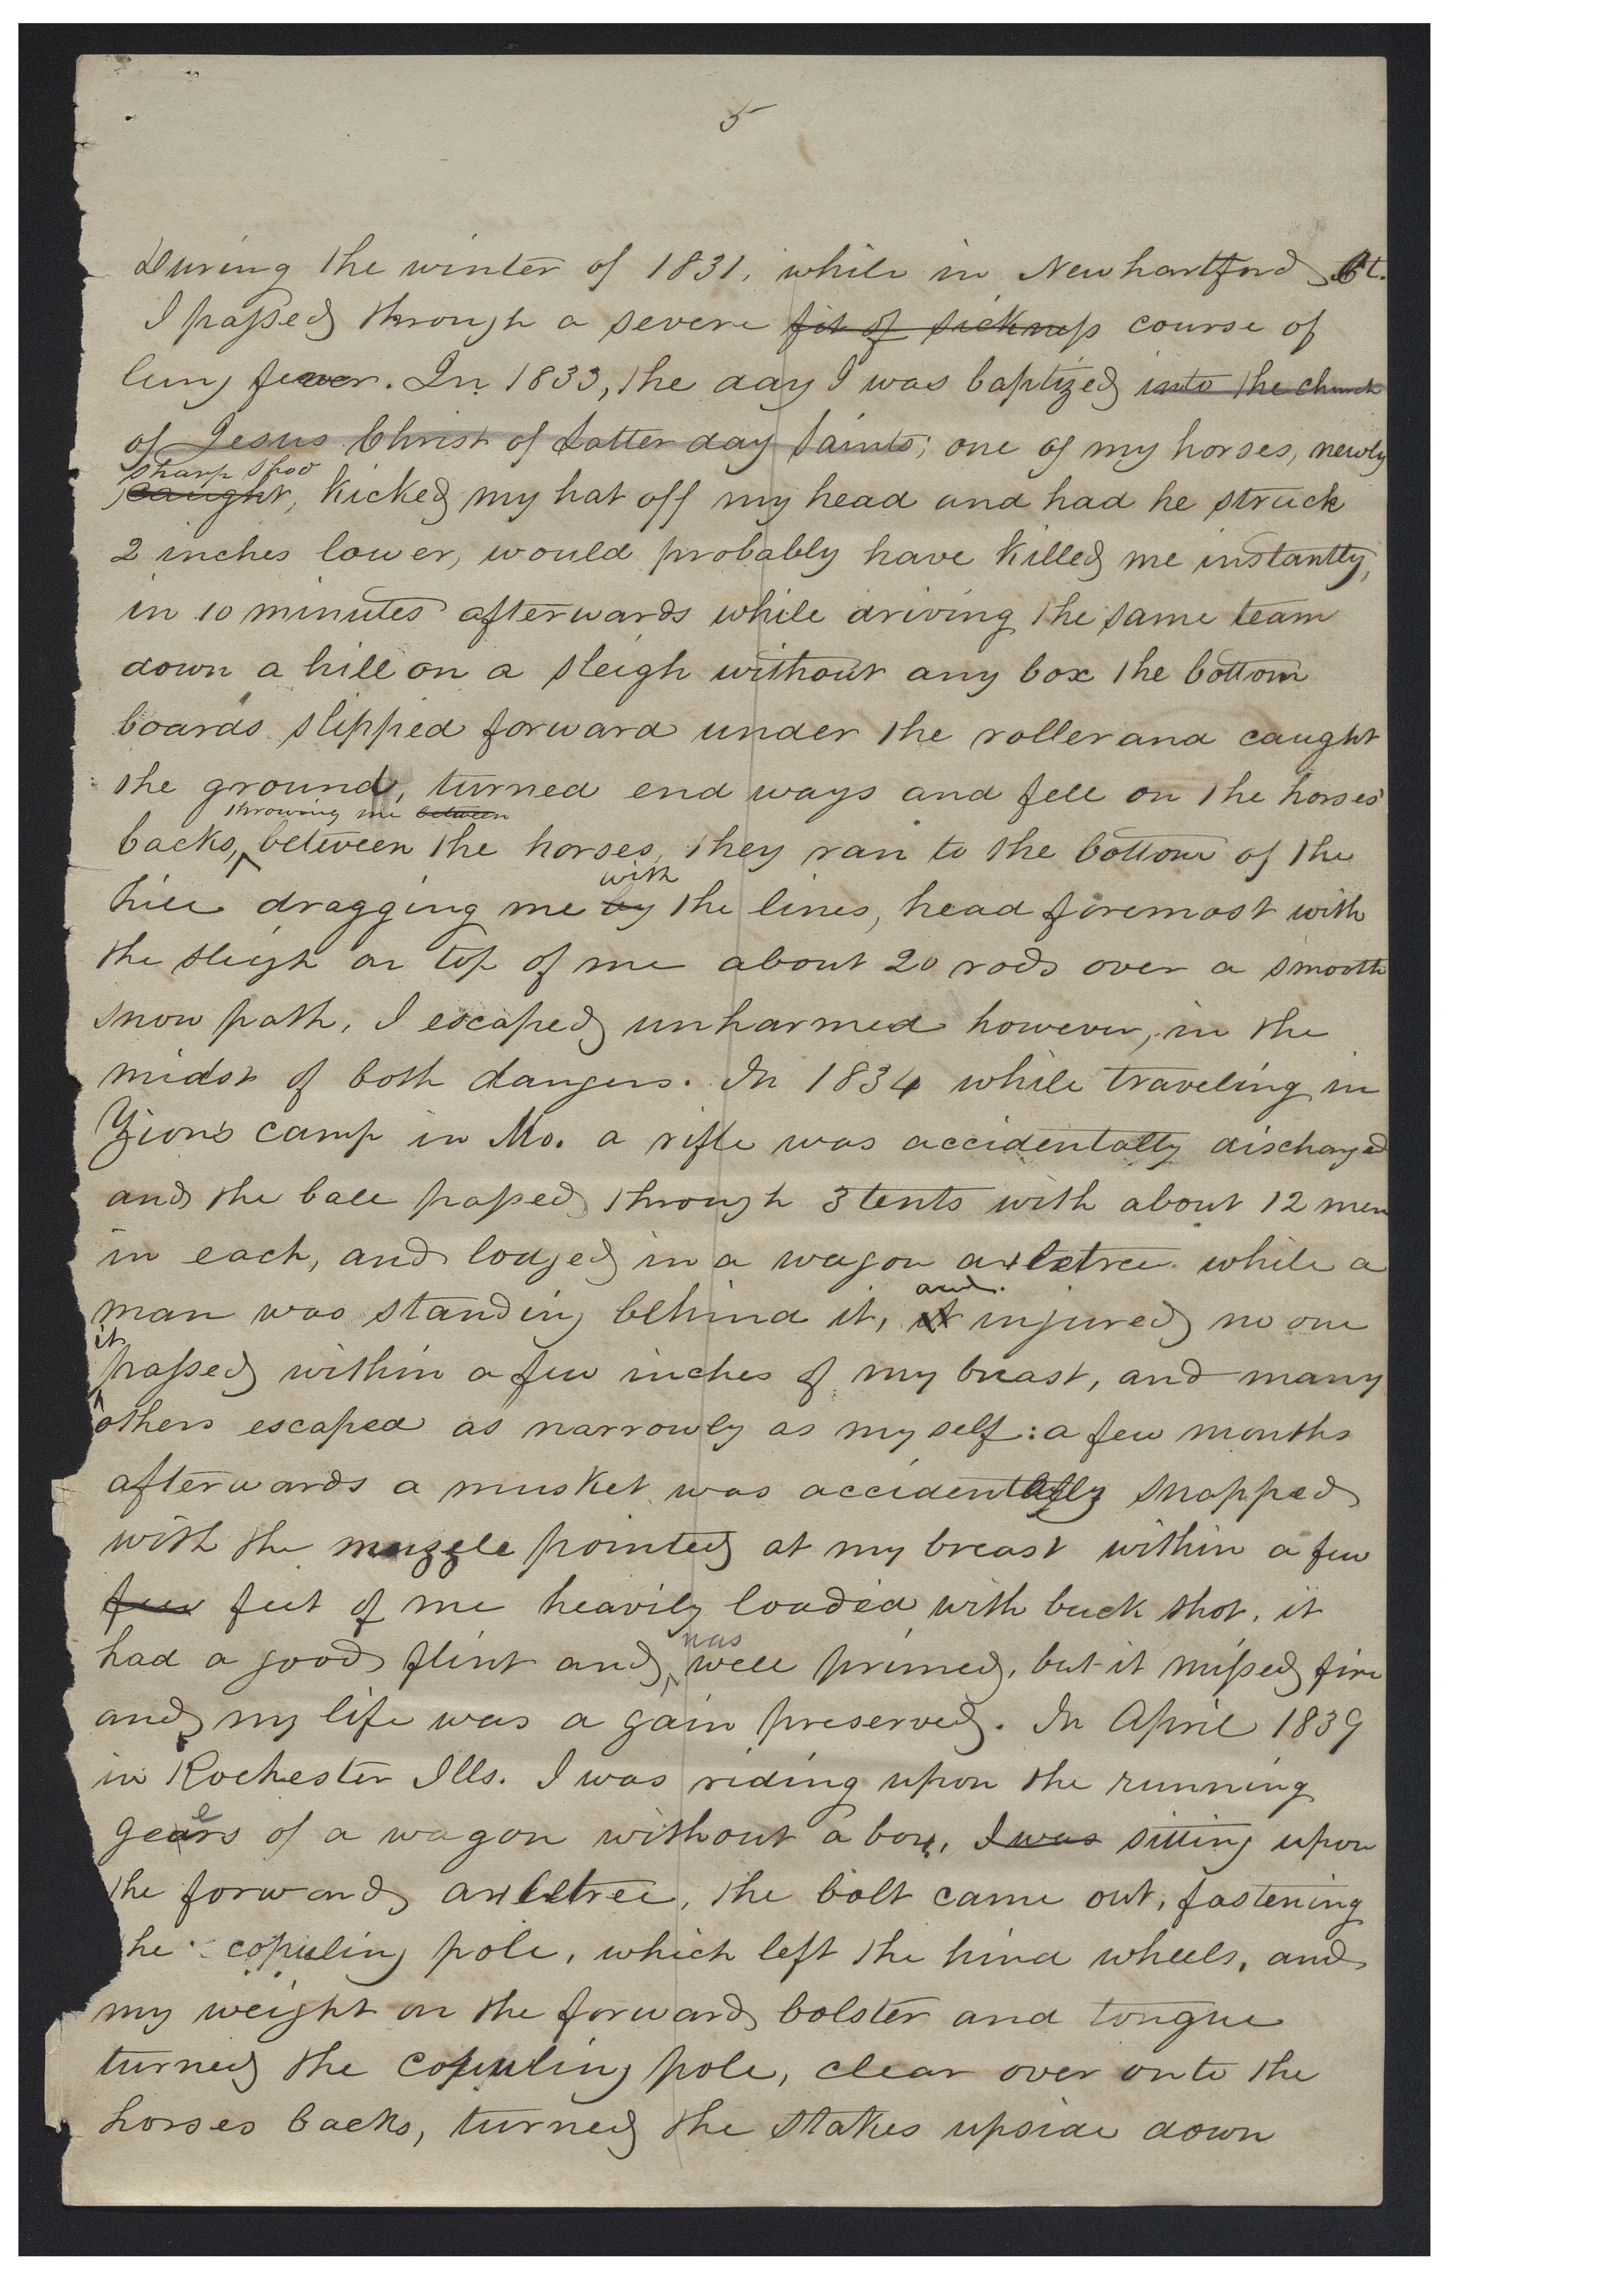 5
During the winter of 1831, while in Newhartford Ct.
I passed through a severe fit of sickness course of
lung fever. In 1833, the day I was baptized into the church
of Jesus Christ of Latter day Saints; one of my horses, newly
sharp shod
caught, kicked my hat off my head and had he struck
2 inches lower, would probably have killed me instantly,
in 10 minutes afterwards while driving the same team
down a hill on a sleigh without any box the bottom
boards slipped forward under the roller and caught
the ground, turned end ways and fell on the horses'
throwing me between
backs, between the horses, they ran to the bottom of the
with
hill dragging me by the lines, head foremost with
the sleigh on top of me about 20 rods over a smooth
snow path, I escaped unharmed however, in the
midst of both dangers. In 1834 while traveling in
Zion's camp in Mo. a rifle was accidentally discharged
and the ball passed through 3 tents with about 12 men
in each, and lodged in a wagon axletree while a
and
man was standing behind it, it injured no one
it
passed within a few inches of my breast, and many
others escaped as narrowly as my self: a few months
afterwards a musket was accidentally snapped
with the muzzle pointed at my breast within a few
few feet of me heavily loaded with buck shot, it
was
had a good flint and well primed, but it missed fire
and my life was a gain preserved. In April 1839
in Rochester Ills. I was riding upon the running
gears of a wagon without a box, I was sitting upon
the forward axletree, the bolt came out, fastening
the coupling pole, which left the hind wheels, and
my weight on the forward bolster and tongue
turned the coupling pole, clear over onto the
horses backs, turned the stakes upside down